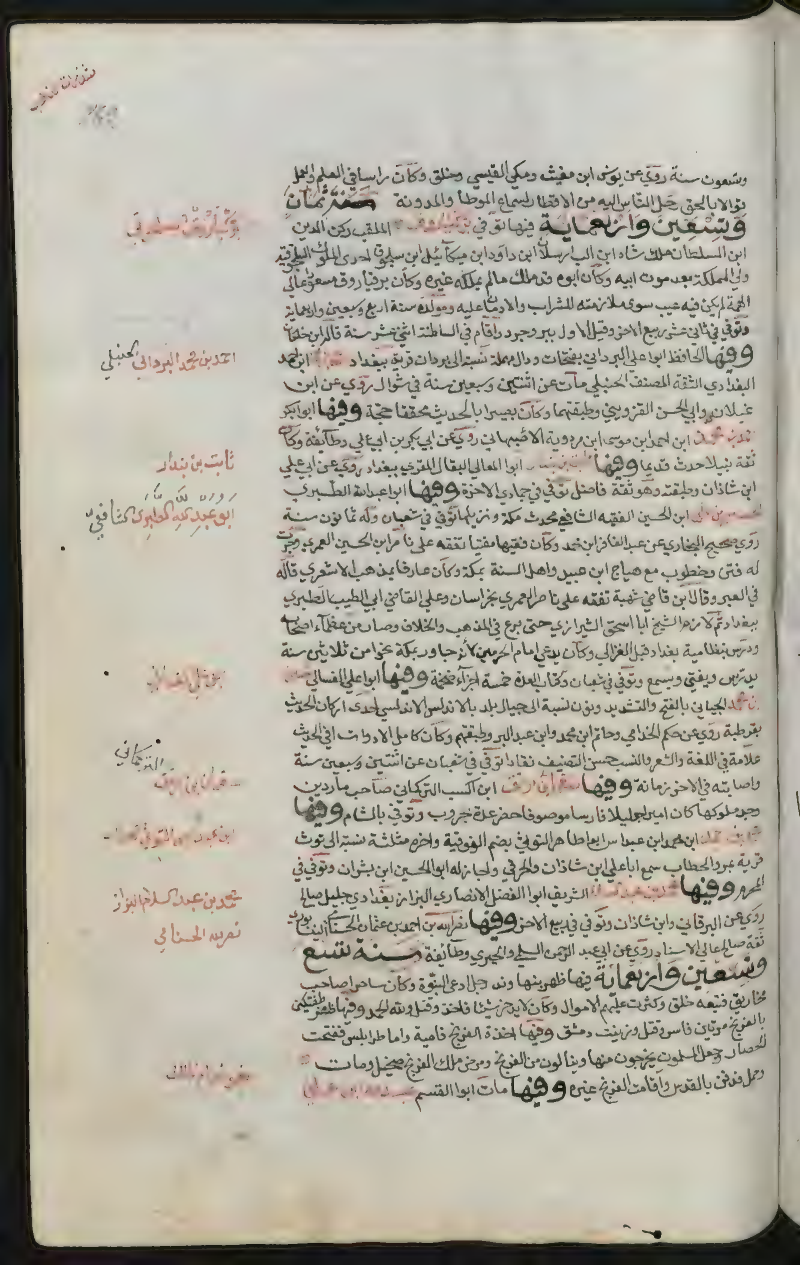 شذرات الذهب
وتسعون سنة روي عن يونس ابن مغيث ومكي القيسي وخلق وكان راسا في العلم والعمل
قوالا بالحق رحل الناس اليه من الاقطار لسماع الموطا والمدونة سنة ثمان
وتسعين واربعماية فيها توفي الملقب ركن الدين
ابن السلطان ملك شاه ابن الب ارسلان ابن داود ابن ميكائيل ابن سلجوق احدى الملوك السلجوقية
ولي المملكة بعد موت ابيه وكان ابوه قد ملك مالم يملكه غيره وكان برقياروق مسعودا عالي
الهمة لم يكن فيه عيب سوى ملازمته للشراب والادمان عليه ومولده سنة اربع وسبعين واربعماية
وتوفي في ثاني عشر ربيع الاخر وقيل الاول ببروجرد واقام في السلطنة اثنتي عشر سنة قاله ابن خلكان
وفيها الحافظ ابوا علي البرداني بفتحات ودال مهملة نسبة الى بردان قرية ببغداد ابن محمد
البغدادي الثقة المصنف الحنبلي مات عن اثنتين وسبعين سنة في شوال روي عن ابن
غيلان وابي الحسن القزويني وطبقتهما وكان بصيرا بالحديث محققا حجة وفيها ابوا بكر
ابن احمد ابن موسى ابن مردوية الاصبهاني روي عن ابي بكر بن ابي علي وطائفة وكان
ثقة نبيلا حدث قديما وفيها ابوا المعالي البقال المقري ببغداد روي عن ابي علي
ابن شاذان وطبقته وهو ثقة فاضل توفي في جمادي الاخرة وفيها ابوا عبد الله الطبري
ابن الحسين الفقيه الشافعي محدث مكة ونزيلها توفي في شعبان وله ثمانون سنة
روى صحيح البخاري عن عبد الغافر ابن محمد وكان فقيها مفتيا تفقه على ناصر ابن الحسين العمري وجرت
له فتن وخطوب مع هياج ابن عبيد واهل السنة بمكة وكان عارفا بمذهب الاشعري قاله
في العبر وقال ابن قاضي شهبة تفقه على ناصر العمري بخراسان وعلى القاضي ابي الطيب الطبري
ببغداد ثم لازم الشيخ ابا اسحق الشيرازي حتى برع في المذهب والخلاف وصار من عظماء اصحابه
ودرس بنظامية بغداد قبل الغزالي وكان يدعى امام الحرمين لانه جاور بمكة نحوا من ثلاثين سنة
يدرس ويفتي ويسمع وتوفي في شعبان وكتاب العدة خمسة اجزاء ضخمة وفيها ابوا علي الغساني
الجياني بالفتح والتشديد ونون نسبة الى جيان بلد بالاندلس الاندلسي احدى اركان الحديث
بقرطبة روي عن حكم الجذامي وحاتم ابن محمد وابن عبد البر وطبقتهم وكان كامل الادوات في الحديث
علامة في اللغة والشعر والنسب حسن التصنيف نقادا توفي في شعبان عن اثنتين وسبعين سنة
واصابته في الاخر زمانة وفيها ابن اكسب التركماني صاحب ماردين
وجد ملوكها كان اميرا جليلا فارسا موصوفا حضر عدة حروب وتوفي بالشام وفيها
ابن محمد ابن عبد اسر ابوا طاهر التوثي بضم الفوقية واخره مثلثة نسبة الى توث
قرية بمرو الحطاب سمع ابا علي ابن شاذان والحرفي واجاز له ابوا الحسين ابن بشران وتوفي في
المحرم وفيها الشريف ابوا الفضل الانصاري البزاز بغدادي جليل صالح
روي عن البرقاني وابن شاذان وتوفي في ربيع الاخر وفيها نصر الله بن احمد بن عثمان الخشنامي النيسابوري
ثقة صالح عالي الاسناد روي عن ابي عبد الرحمن السلمي والحيري وطائفة سنة تسع
وتسعين واربعماية فيها ظهر بنهاوند رجل ادعى النبوة وكان ساحرا صاحب
مخاريق فتبعه خلق وكثرت عليهم الاموال وكان لا يدخر شيئا فاخذ وقتل ولله الحمد وفيها ظفر طغتكين
بالفرنج مرتين فاسر وقتل وزينت دمشق وفيها اخذة الفرنج فامية واما طرابلس ففتحت
الحصار وجعل المسلمون يخرجون منها وينالون من الفرنج ومرض ملك الفرنج صنجيل ومات
وحمل فدفن بالقدس واقامت الفرنج غيره وفيها مات ابوا القسم
احمد بن محمد البرداني الحنبلي
ثابت بن بندار
ابو عبد الله الطبري الشافعي
ابو علي الغساني
التركماني
محمد بن عبد السلام البزاز
نصر الله الخشنامي